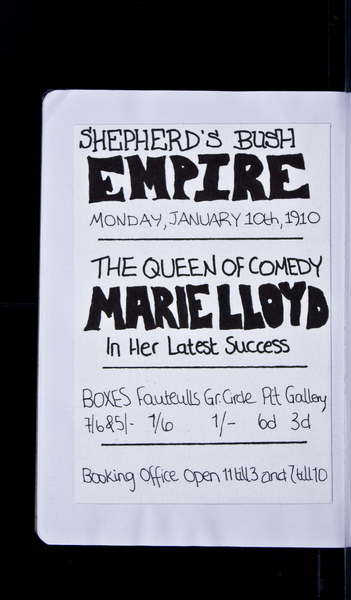 SHEPHERD'S BUSH
EMPIRE
MONDAY, JANUARY 10th, 1910
THE QUEEN OF COMEDY
MARIE LLOYD
In Her Latest Success
BOXES Fauteulls Gr. Circle Pit Gallery
7/6 & 5/- 1/6 1/- 6d 3d
Booking Office Open 11 till 3 and 7 till 10